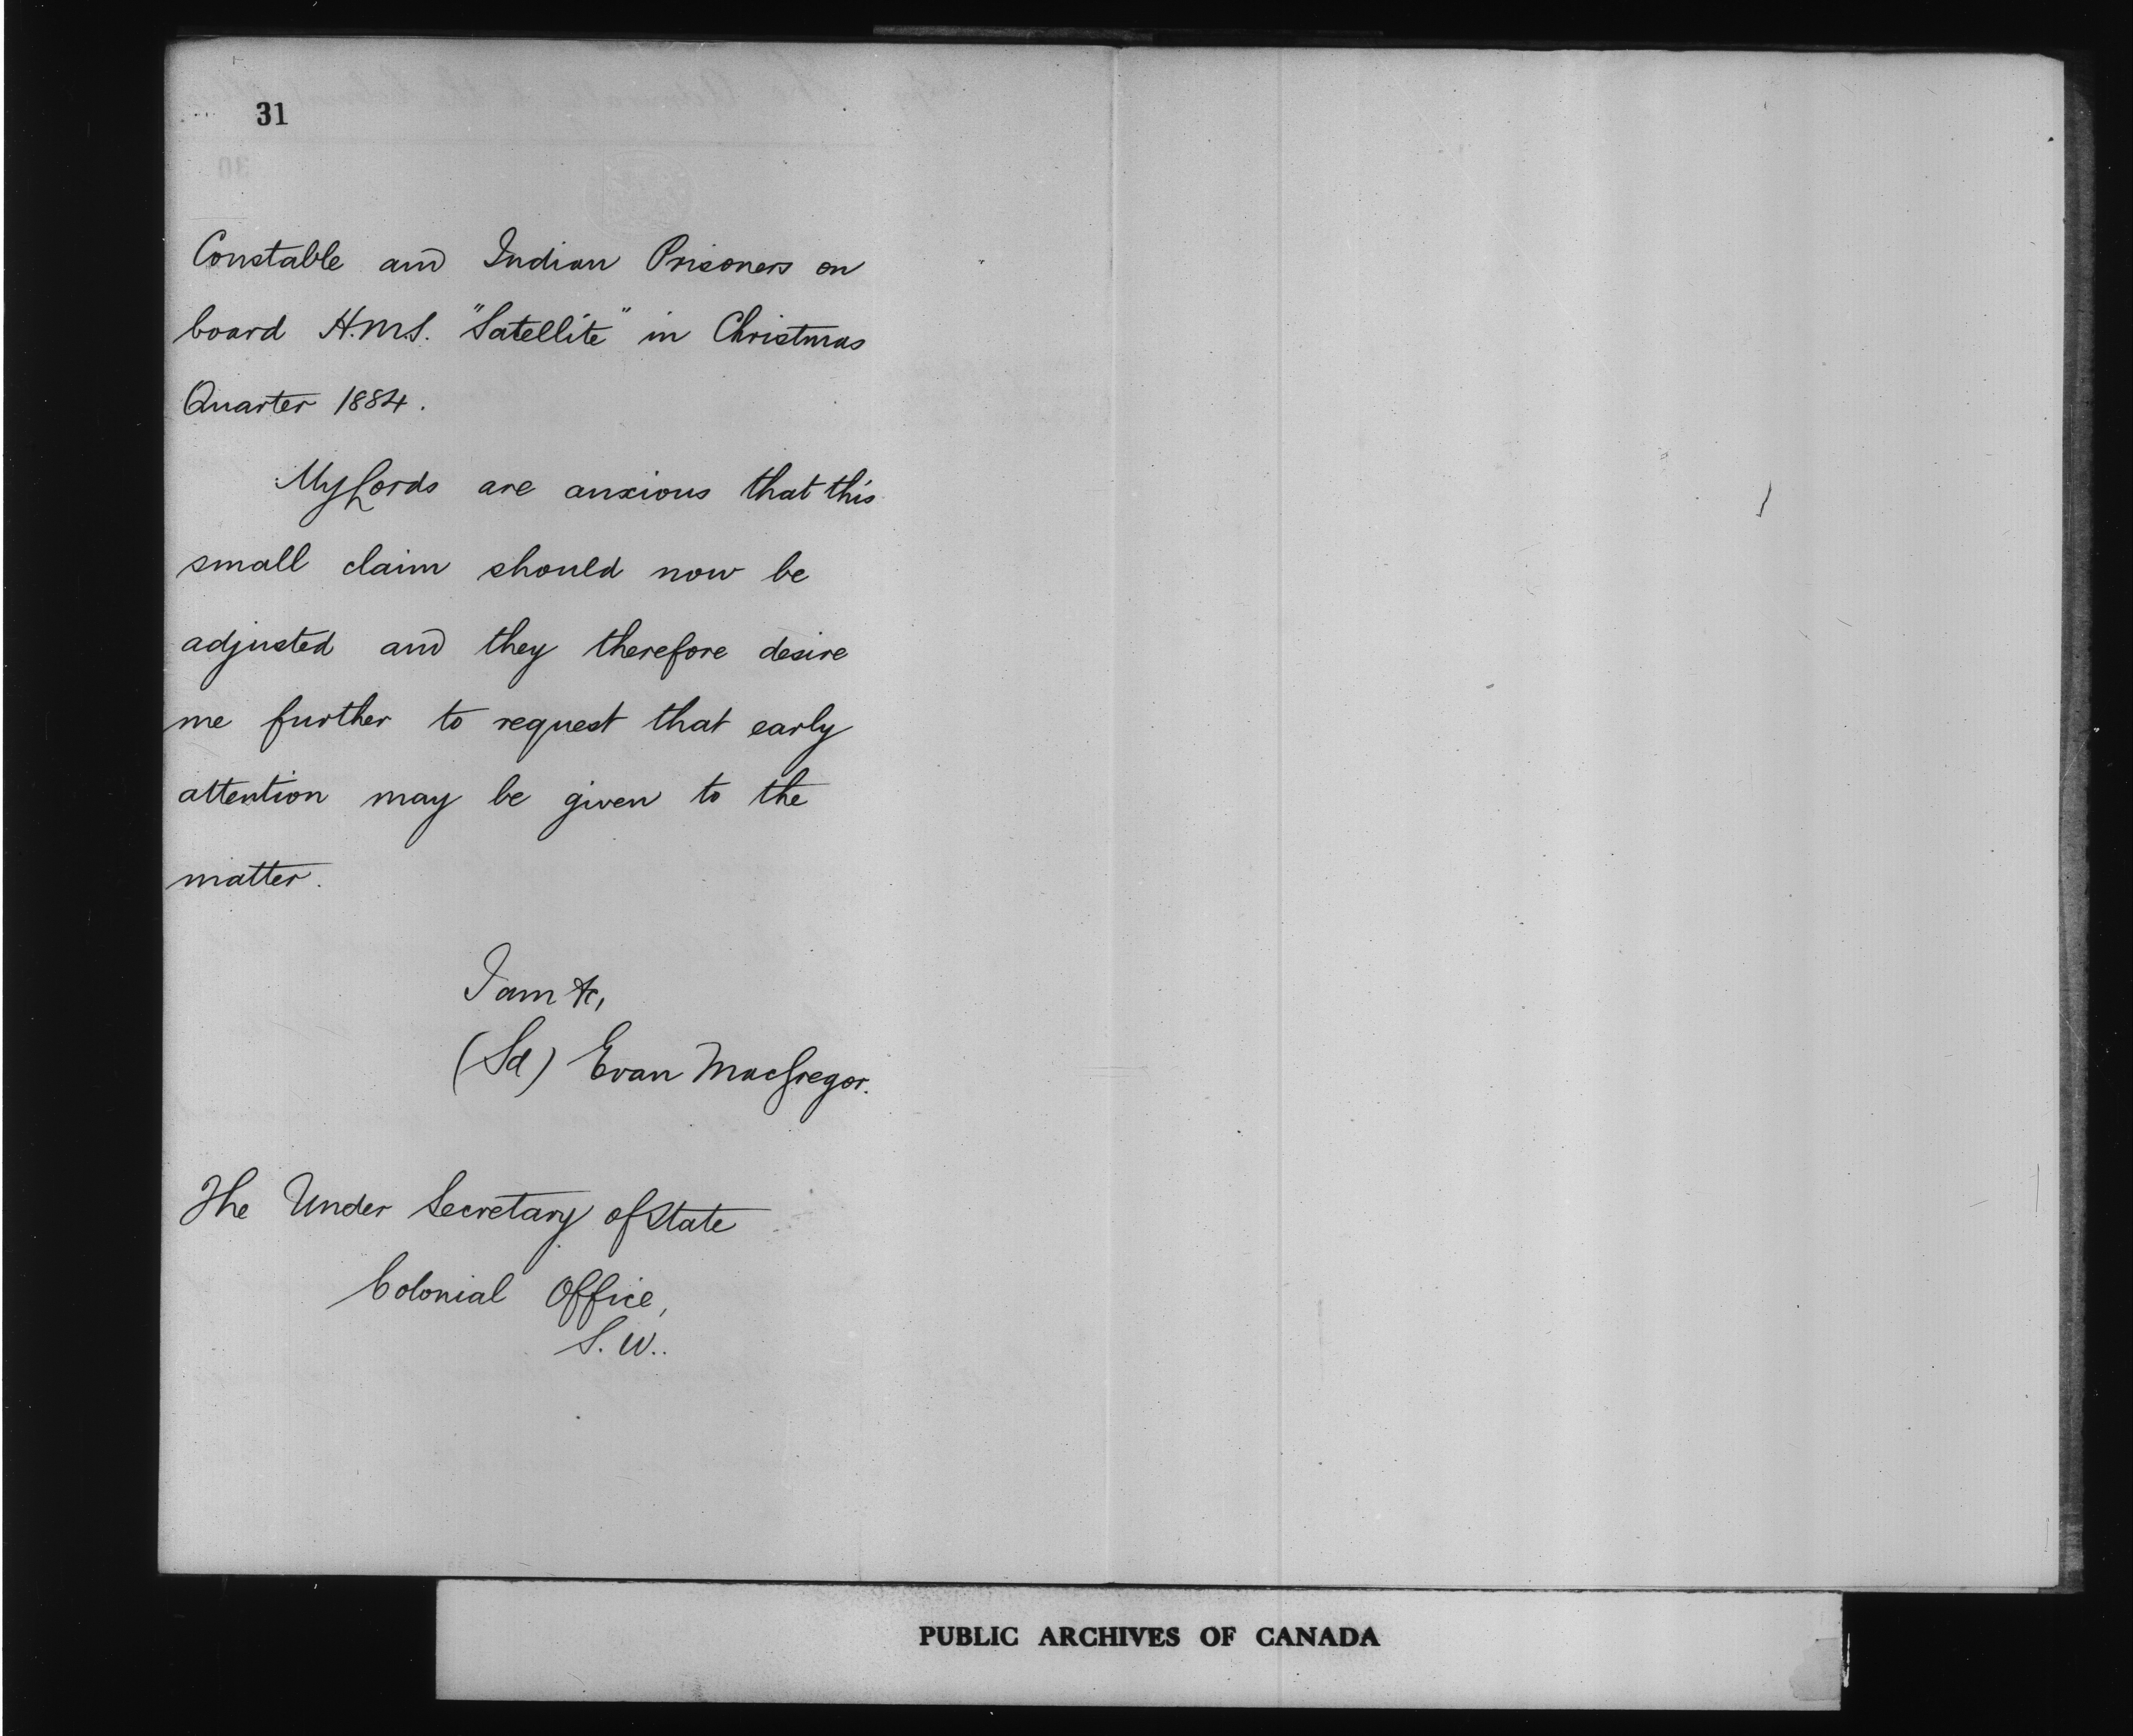 31
Constable and Indian Prisoners on
board H.M.S. "Satellite" in Christmas
Quarter 1884.
My Lords are anxious that this
small claim should now be
adjusted and they therefore desire
me further to request that early
attention may be given to the
matter.
I am &c,
(Sd) Evan MacGregor.
The Under Secretary of State
Colonial Office,
S.W..
PUBLIC ARCHIVES OF CANADA